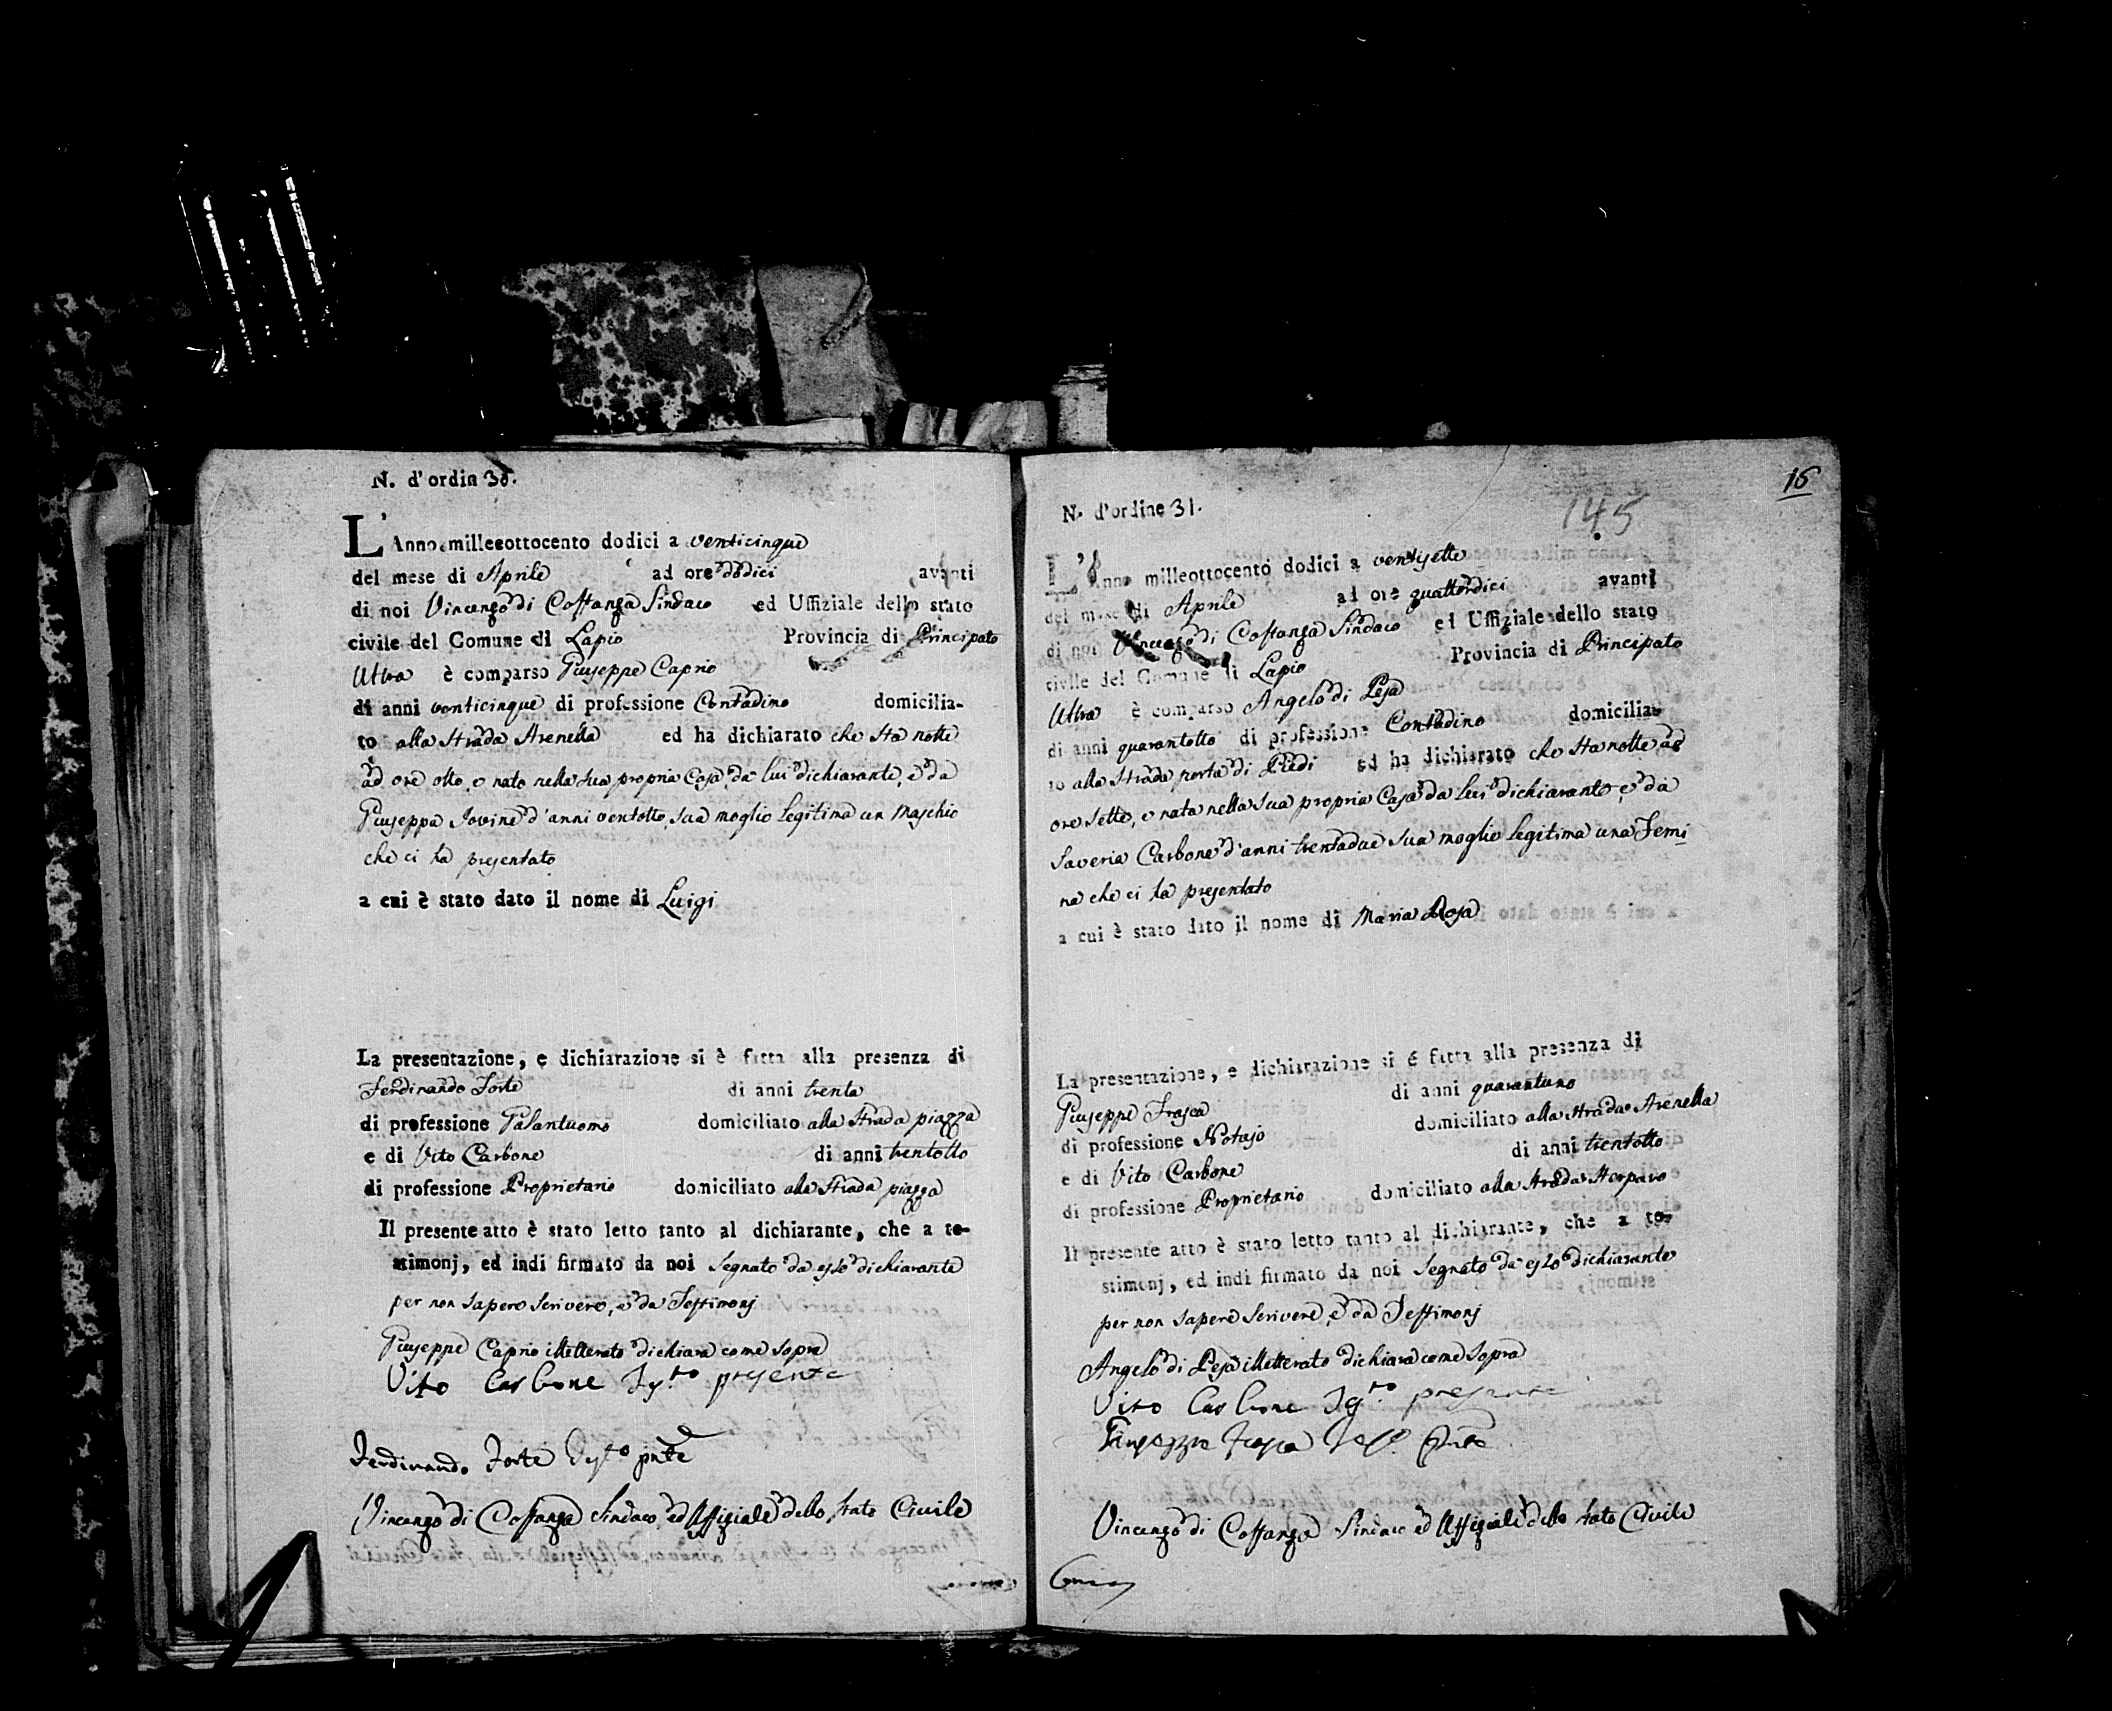 N. d'ordin 30.
L'Anno milleottocento dodici a venticinque
del mese di Aprile ad ore dodici avanti
di noi Vincenzo di Costanza Sindaco ed Uffiziale dello stato
civile del Comune di Lapio Provincia di Principato
Ultra è comparso Giuseppe Caprio
di anni venticinque di professione Contadino domicilia-
to alla strada Arenella ed ha dichiarato che sta notte
ad ore otto, e nato nella sua propria Casa da lui dichiarante, e da
Giuseppa Iovine d'anni ventotto, sua moglie legitima un Maschio
che ci ha presentato
a cui è stato dato il nome di Luigi
La presentazione, e dichiarazione si è fatta alla presenza di
Ferdinando Forte di anni trenta
di professione Galantuomo domiciliato alla strada piazza
e di Vito Carbone di anni trentotto
di professione Proprietario domiciliato alla strada piazza
Il presente atto è stato letto tanto al dichiarante, che a te-
stimonj, ed indi firmato da noi segnato da esso dichiarante
per non sapere scrivere, e da Testimonj
Giuseppe Caprio illetterato dichiara come sopra
Vito Carbone Tes.to presente
Ferdinando Forte Tes.to pnte
Vincenzo di Costanza Sindaco ed Uffiziale dello stato Civile
16
145
N. d'ordine 31.
L'Anno milleottocento dodici a ventisette
del mese di Aprile ad ore quattordici avanti
di noi Vincenzo di Costanza Sindaco ed Uffiziale dello stato
civile del Comune di Lapio Provincia di Principato
Ultra è comparso Angelo di Pesa
di anni quarantotto di professione Contadino domicilia-
to alla strada porta di Piedi ed ha dichiarato che sta notte ad
ore sette, e nata nella sua propria Casa da lui dichiarante, e da
Saveria Carbone d'anni trentadue sua moglie legitima una Femi
na che ci ha presentato
a cui è stato dato il nome di Maria Rosa
La presentazione, e dichiarazione si è fatta alla presenza di
Giuseppe Frasca di anni quarantuno
di professione Notajo domiciliato alla strada Arenella
e di Vito Carbone di anni trentotto
di professione Proprietario domiciliato alla strada
Il presente atto è stato letto tanto al dichiarante, che a te-
stimonj, ed indi firmato da noi segnato da esso dichiarante
per non sapere scrivere, e da Testimonj
Angelo di Pesa illetterato dichiara come sopra
Vito Carbone Tes.to presente
Giuseppe Frasca
Vincenzo di Costanza Sindaco ed Uffiziale dello stato Civile